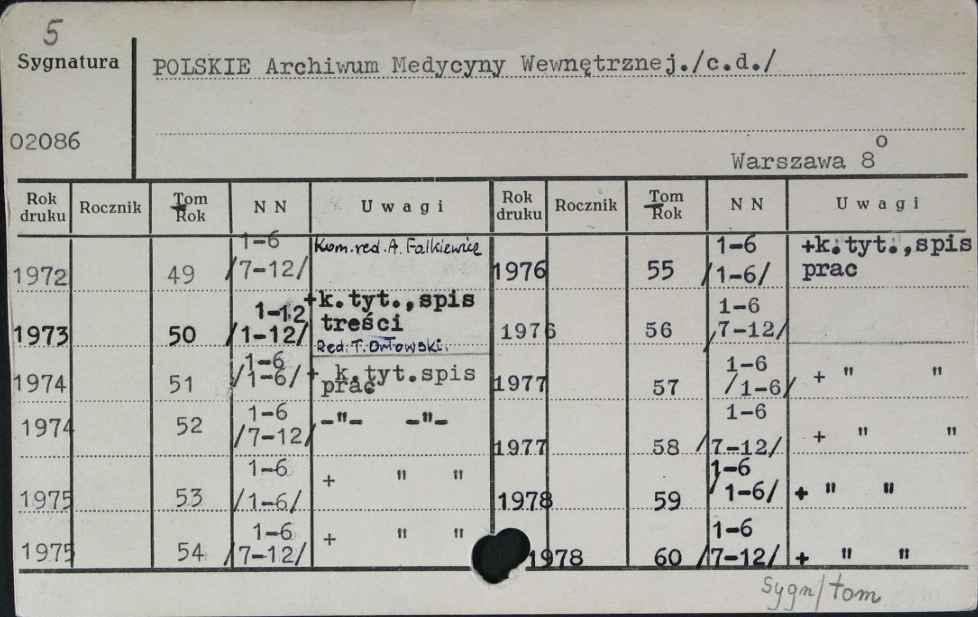 5
Sygnatura
POLSKIE Archiwum Medycyny Wewnętrznej./c.d./
02086
Warszawa 8o
Rok druku Rocznik Tom Rok N N U w a g i Rok druku Rocznik Tom Rok N N U w a g i
1972 49 1-6 /7-12/ Kom.red. A. Falkiewicz 1976 55 1-6 /1-6/ +k.tyt.,spis prac
1973 50 1-12 /1-12/ +k.tyt.,spis treści Red: T. Orłowski. 1976 56 1-6 /7-12/
1974 51 1-6 /1-6/ + k.tyt.spis prac 1977 57 1-6 /1-6/ + " "
1974 52 1-6 /7-12/ -"- -"- 1977 58 1-6 /7-12/ + " "
1975 53 1-6 /1-6/ + " " 1978 59 1-6 /1-6/ + " "
1975 54 1-6 /7-12/ + " " 1978 60 1-6 /7-12/ + " "
sygn/tom